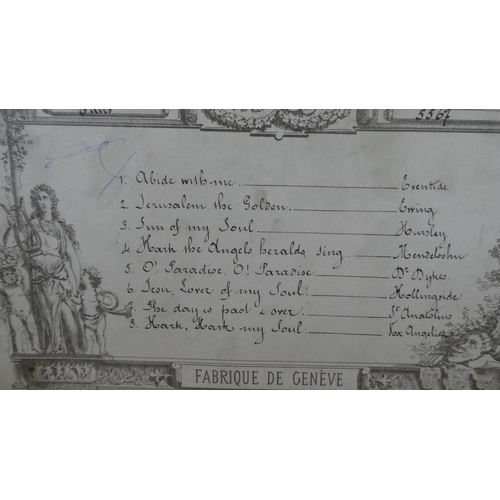 5567
1. Abide with me Eventide
2. Jerusalem the Golden Ewing
3. Sun of my Soul Hursley
4. Hark the Angels, heralds, sing Mendelsohn
5. O! Paradise, O! Paradise Dr Dykes
6. Jesu, Lover of my Soul! Hollingside
7. The day is past & over St Anatolius
8. Hark, Hark my Soul! Vox Angelica
FABRIQUE DE GENÈVE